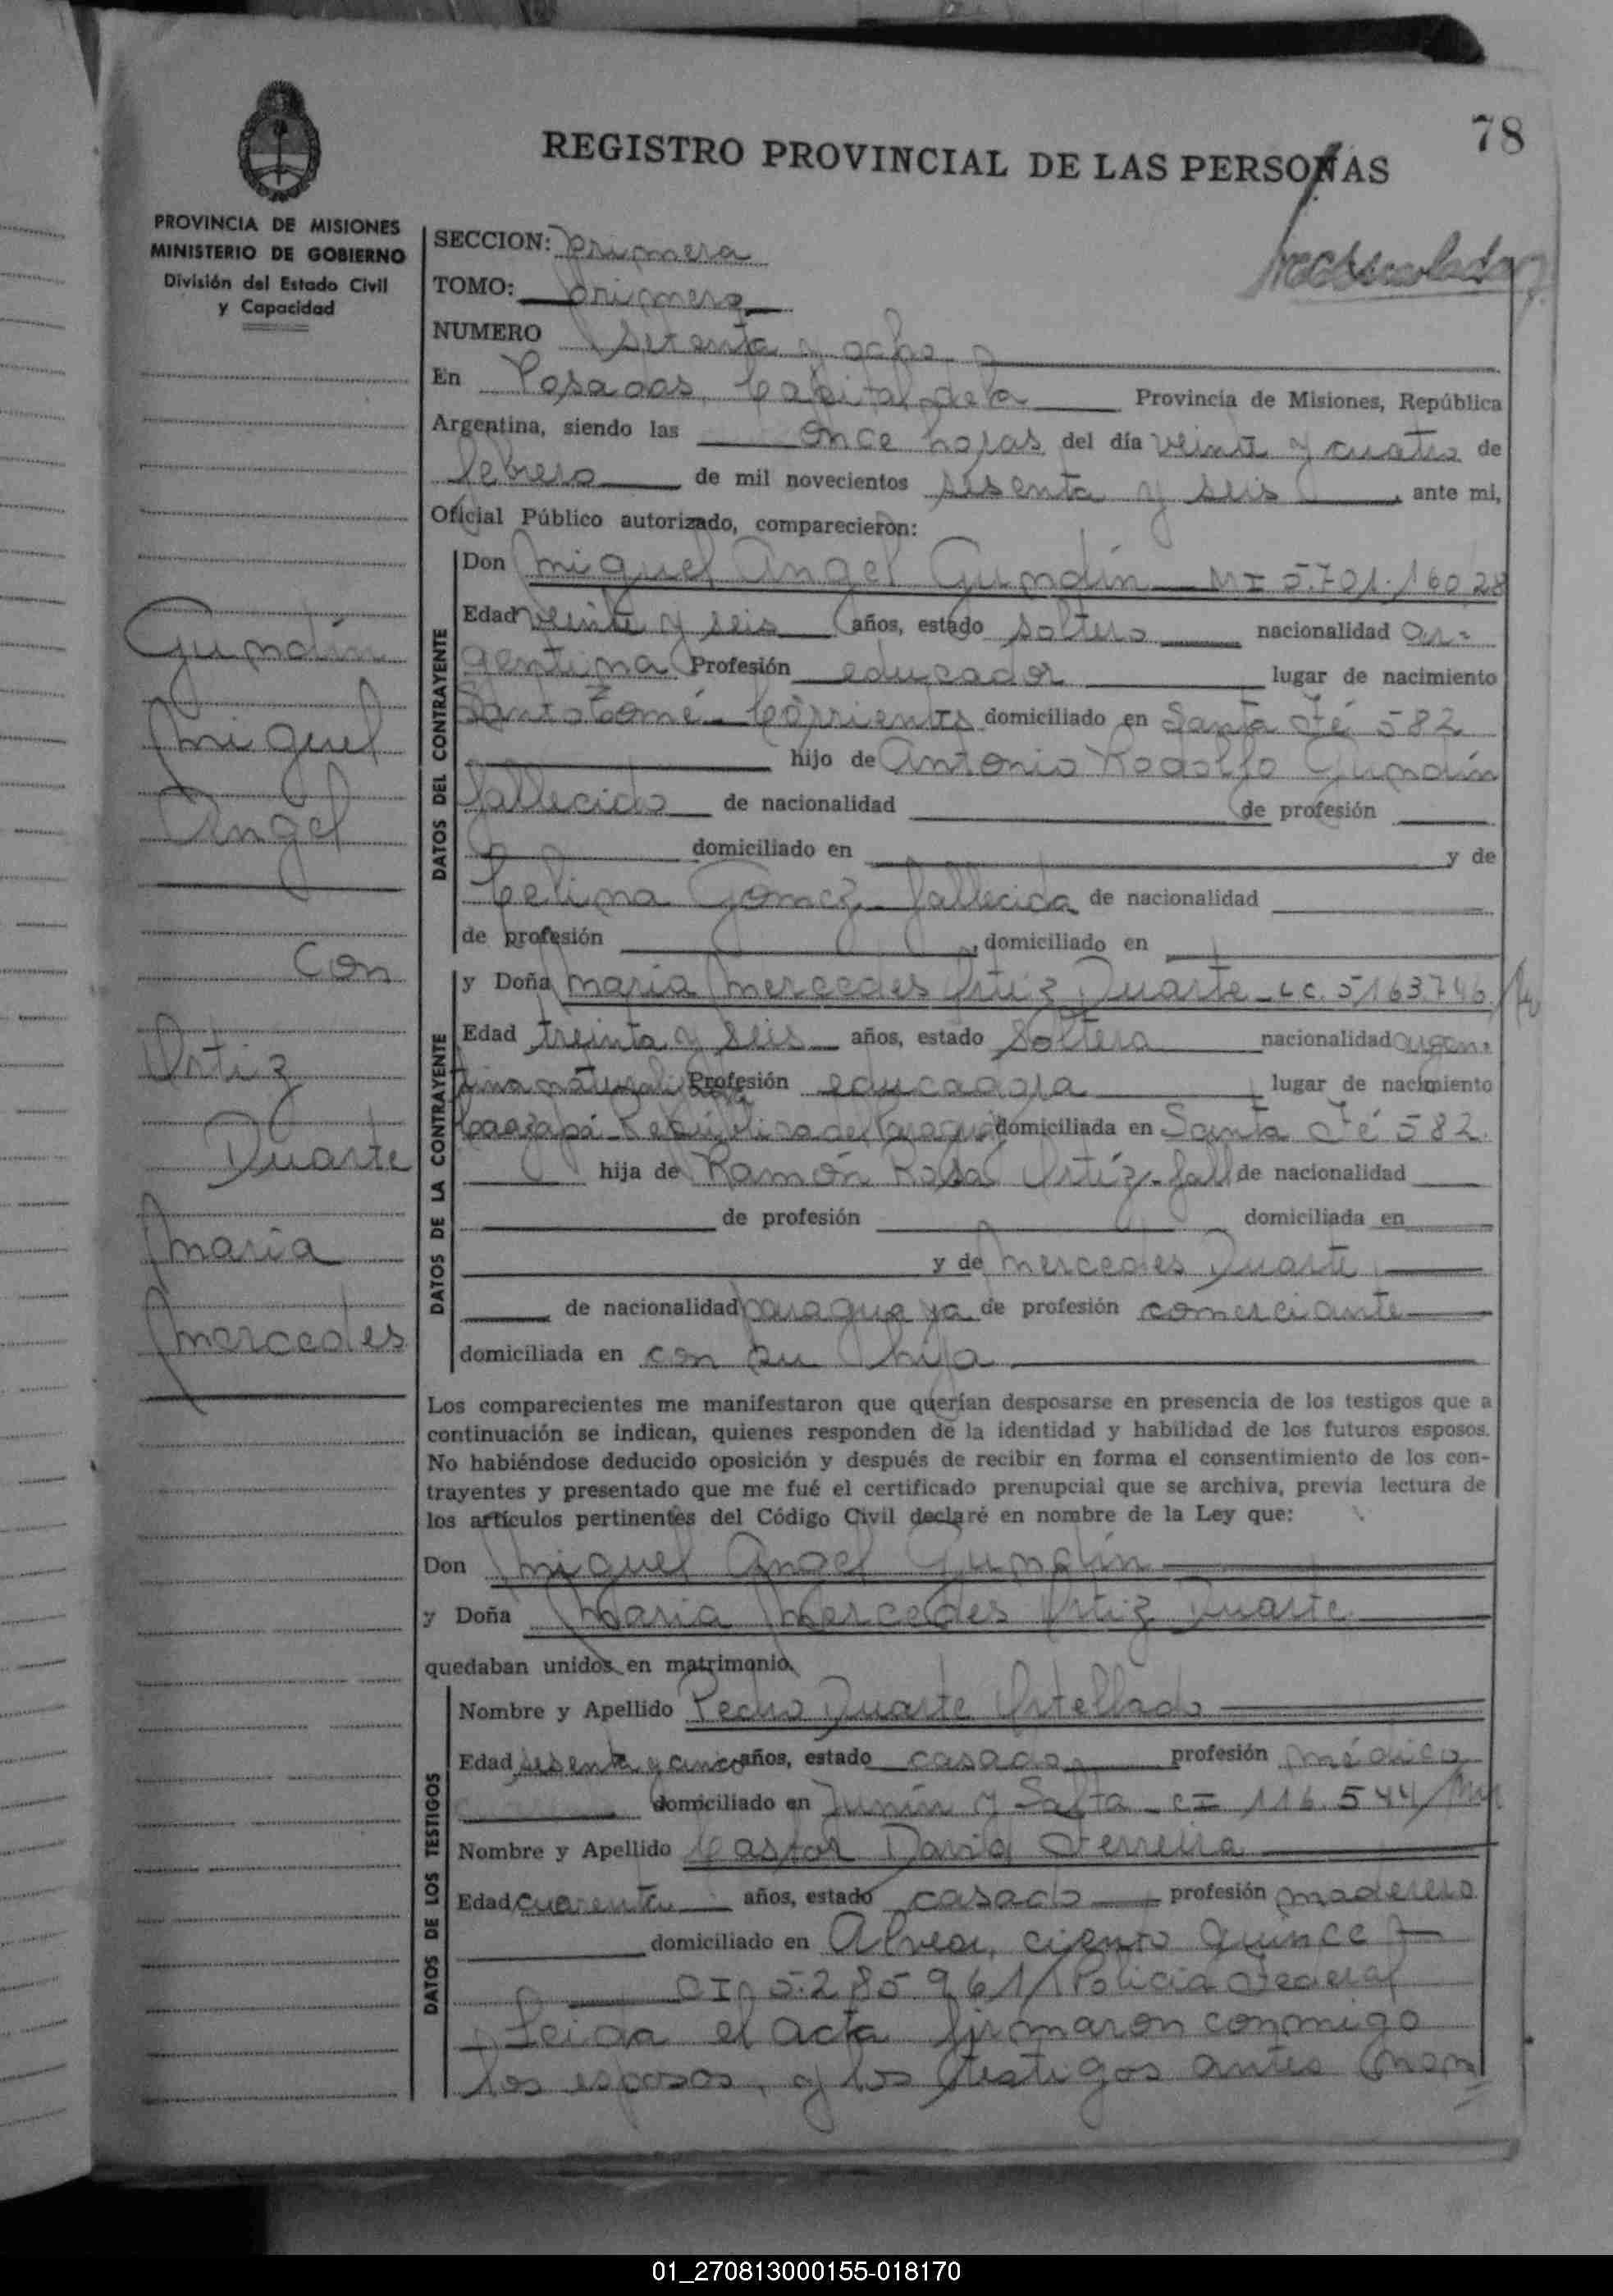 78
REGISTRO PROVINCIAL DE LAS PERSONAS
PROVINCIA DE MISIONES
MINISTERIO DE GOBIERNO
División del Estado Civil
y Capacidad
SECCION: primera
TOMO: primero
NUMERO setenta y ocho
En Posadas, Capital de la Provincia de Misiones, República
Argentina, siendo las once horas del día veinte y cuatro de
febrero de mil novecientos sesenta y seis, ante mi,
Oficial Público autorizado, comparecieron:
Gundín
Miguel
Angel
con
Ortiz
Duarte
María
Mercedes
DATOS DEL CONTRAYENTE
Don Miguel Angel Gundín MI 5.701.160,28
Edad veinte y seis años, estado soltero nacionalidad ar-
gentina Profesión educador lugar de nacimiento
Santo Tomé - Corrientes domiciliado en Santa Fé 582
hijo de Antonio Rodolfo Gundín
fallecido de nacionalidad de profesión
domiciliado en y de
Celina Gomez - fallecida de nacionalidad
de profesión , domiciliado en
DATOS DE LA CONTRAYENTE
y Doña María Mercedes Ortiz Duarte - LC. 5163746
Edad treinta y seis años, estado soltera nacionalidad argen-
tina naturalizada Profesión educadora lugar de nacimiento
Caazapá - República del Paraguay domiciliada en Santa Fé 582.
hija de Ramón Rosa Ortíz - fall de nacionalidad
de profesión domiciliada en
y de Mercedes Duarte
de nacionalidad paraguaya de profesión comerciante
domiciliada en con su hija
Los comparecientes me manifestaron que querían desposarse en presencia de los testigos que a
continuación se indican, quienes responden de la identidad y habilidad de los futuros esposos.
No habiéndose deducido oposición y después de recibir en forma el consentimiento de los con-
trayentes y presentado que me fué el certificado prenupcial que se archiva, previa lectura de
los artículos pertinentes del Código Civil declaré en nombre de la Ley que:
Don Miguel Angel Gundín
y Doña María Mercedes Ortiz Duarte
quedaban unidos en matrimonio.
DATOS DE LOS TESTIGOS
Nombre y Apellido Pedro Duarte Ortellado
Edad sesenta y cinco años, estado casado profesión médico
domiciliado en Junín y Salta - CI 116.544/
Nombre y Apellido Castor David Ferreira
Edad cuarenta años, estado casado profesión maderero
domiciliado en Alvear, ciento quince
CI 5.285961/Policia Federal
Leida el acta firmaron conmigo
los esposos, y los testigos antes nom
01_270813000155-018170